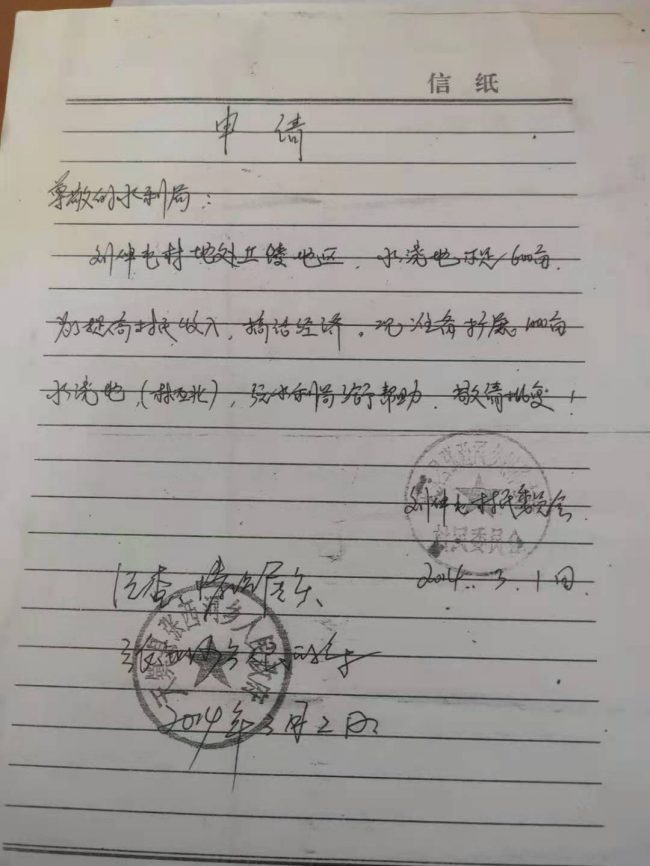 信纸
申请
尊敬的水利局:
刘伴屯村地处丘陵地区,水浇地不足600亩,
为了提高村民收入,搞活经济,现准备扩展1000亩
水浇地(村西北),望水利局给予帮助,敬请批复!
刘伴屯村村民委员会
村民委员会
2014.3.1日
经查,情况属实、
天镇县张西河乡人民政府
2014年3月2日